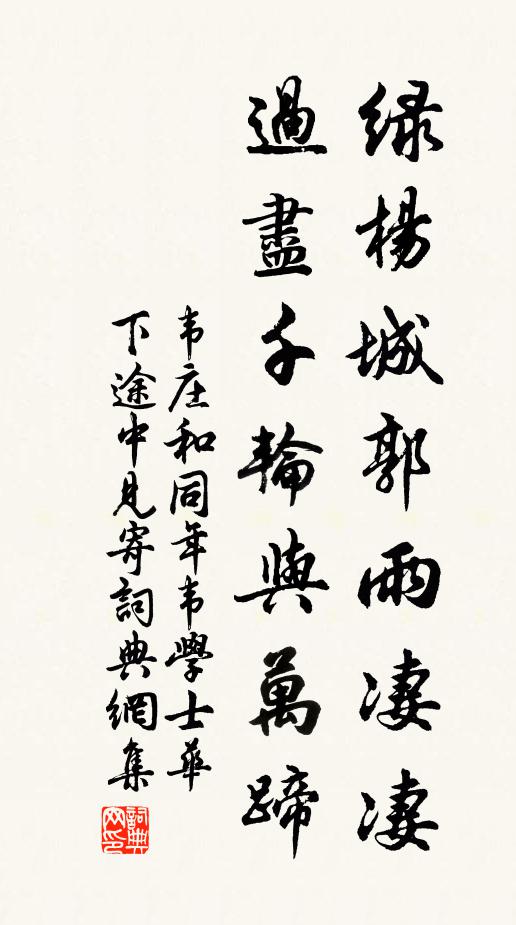 绿楊城郭雨凄凄
過盡千輪與萬蹄
韦庄和同年韦學士華
下途中見寄詞典網集
詞典網印